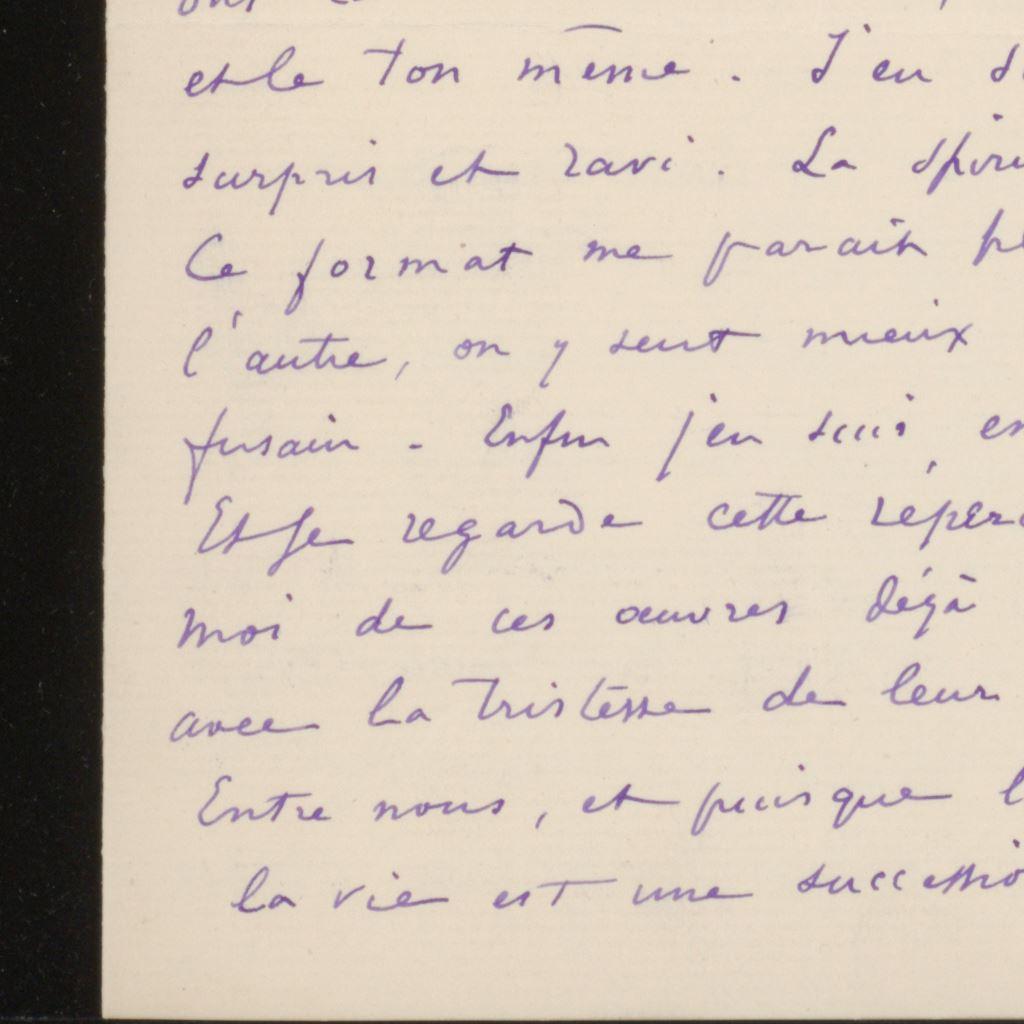 et le ton même. J'en
surpris et ravi. La
Ce format me parait
l'autre, on y sent mieux
fusain. Enfin j'en suis
Et je regarde cette
moi de ces œuvres déjà
avec la tristesse de leur
Entre nous, et puisque
la vie est une